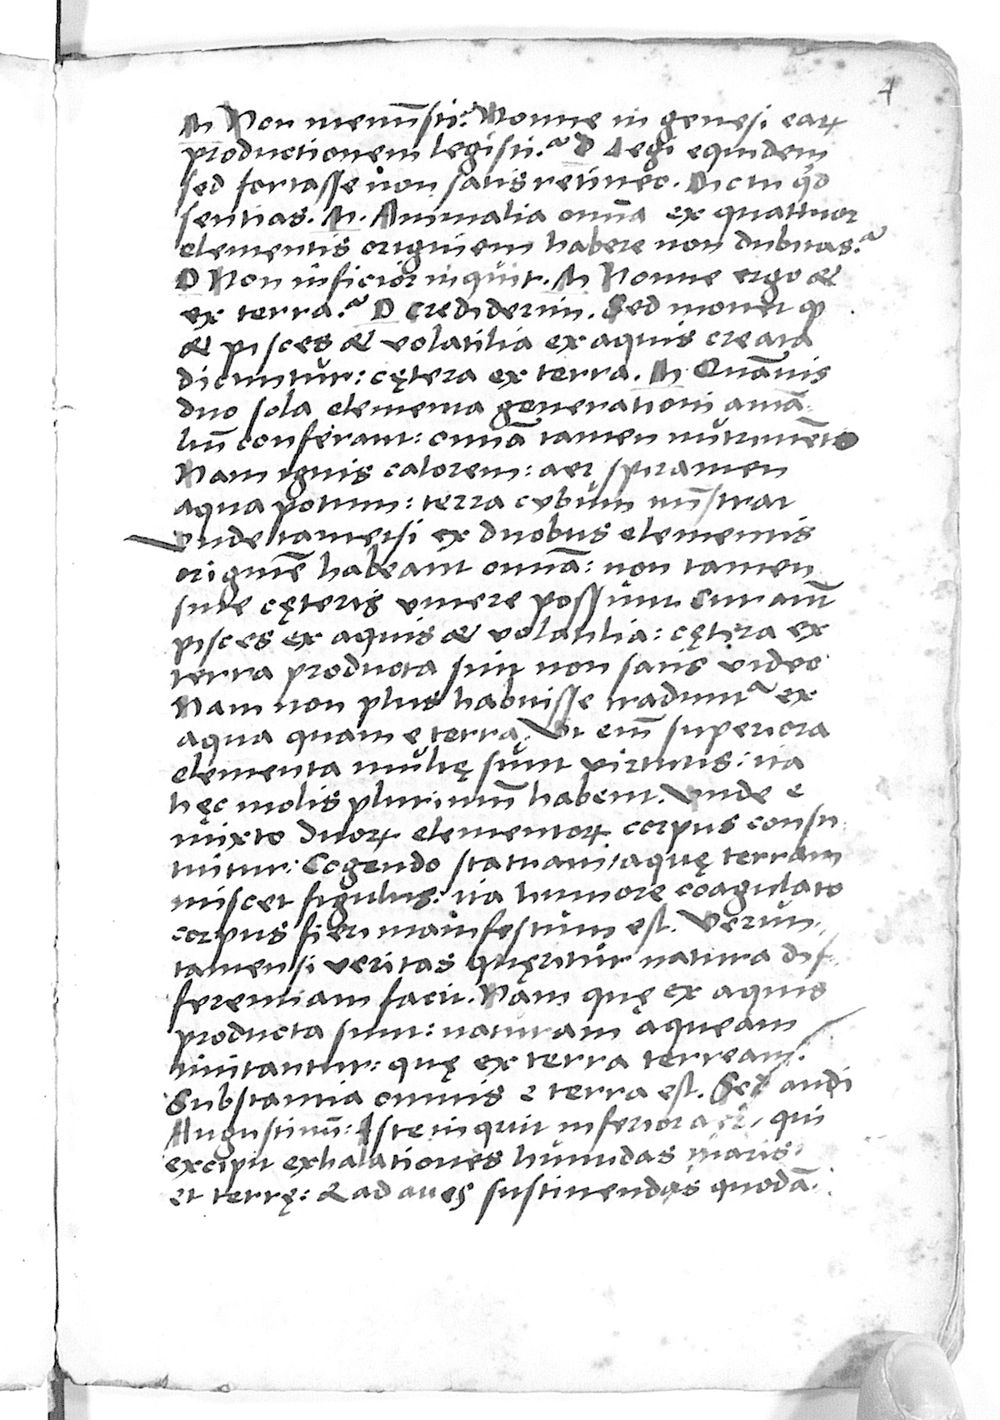 4
M Non meministi? Nonne in genesi eaꝝ
productionem legisti? D Legi equidem
sed fortasse non satis retineo. Dic tu qd
sentias. M. Animalia omĩa ex quattuor
elementis originem habere non dubitas?
D Non inficior inquit. M Nonne ergo &
ex terra? D Crediderim. Sed movet ꝙ
& pisces & volatilia ex aquis creata
dicuntur: cętera ex terra. M Quãvis
duo sola elementa generationi animã
liũ conferant: omnia tamen nutrimẽto
Nam ignis calorem: aer spiramen
aqua potum: terra cybum mĩstrat
Unde tametsi ex duobus elementis
originẽ habeant omnia: non tamen
sine cęteris vivere possunt Cur autẽ
pisces ex aquis & volatilia: cętera ex
terra producta sint non satis video
Nam non plus habuisse traduntᷣ ex
aqua quam e terra. Ut eĩ superiora
elementa multę sunt virtutis: ita
hęc molis plurimũ habent. Unde e
mixto duoꝝ elementoꝝ corpus consti
tuitur: Cogendo statuam, aquę terram
miscet figulus: ita humore coagulato
corpus fieri manifestum est. Verun
tamen si veritas quęritur natura dif
ferentiam facit. Nam quę ex aquis
producta sunt: naturam aqueam
imitantur: quę ex terra terream.
Substantia omnis e terra est. Sed audi
Augustinũ: Iste inquit inferiora er, qui
excipit exhalationes humidas maris
et terrę: & ad aves sustinendas quodã